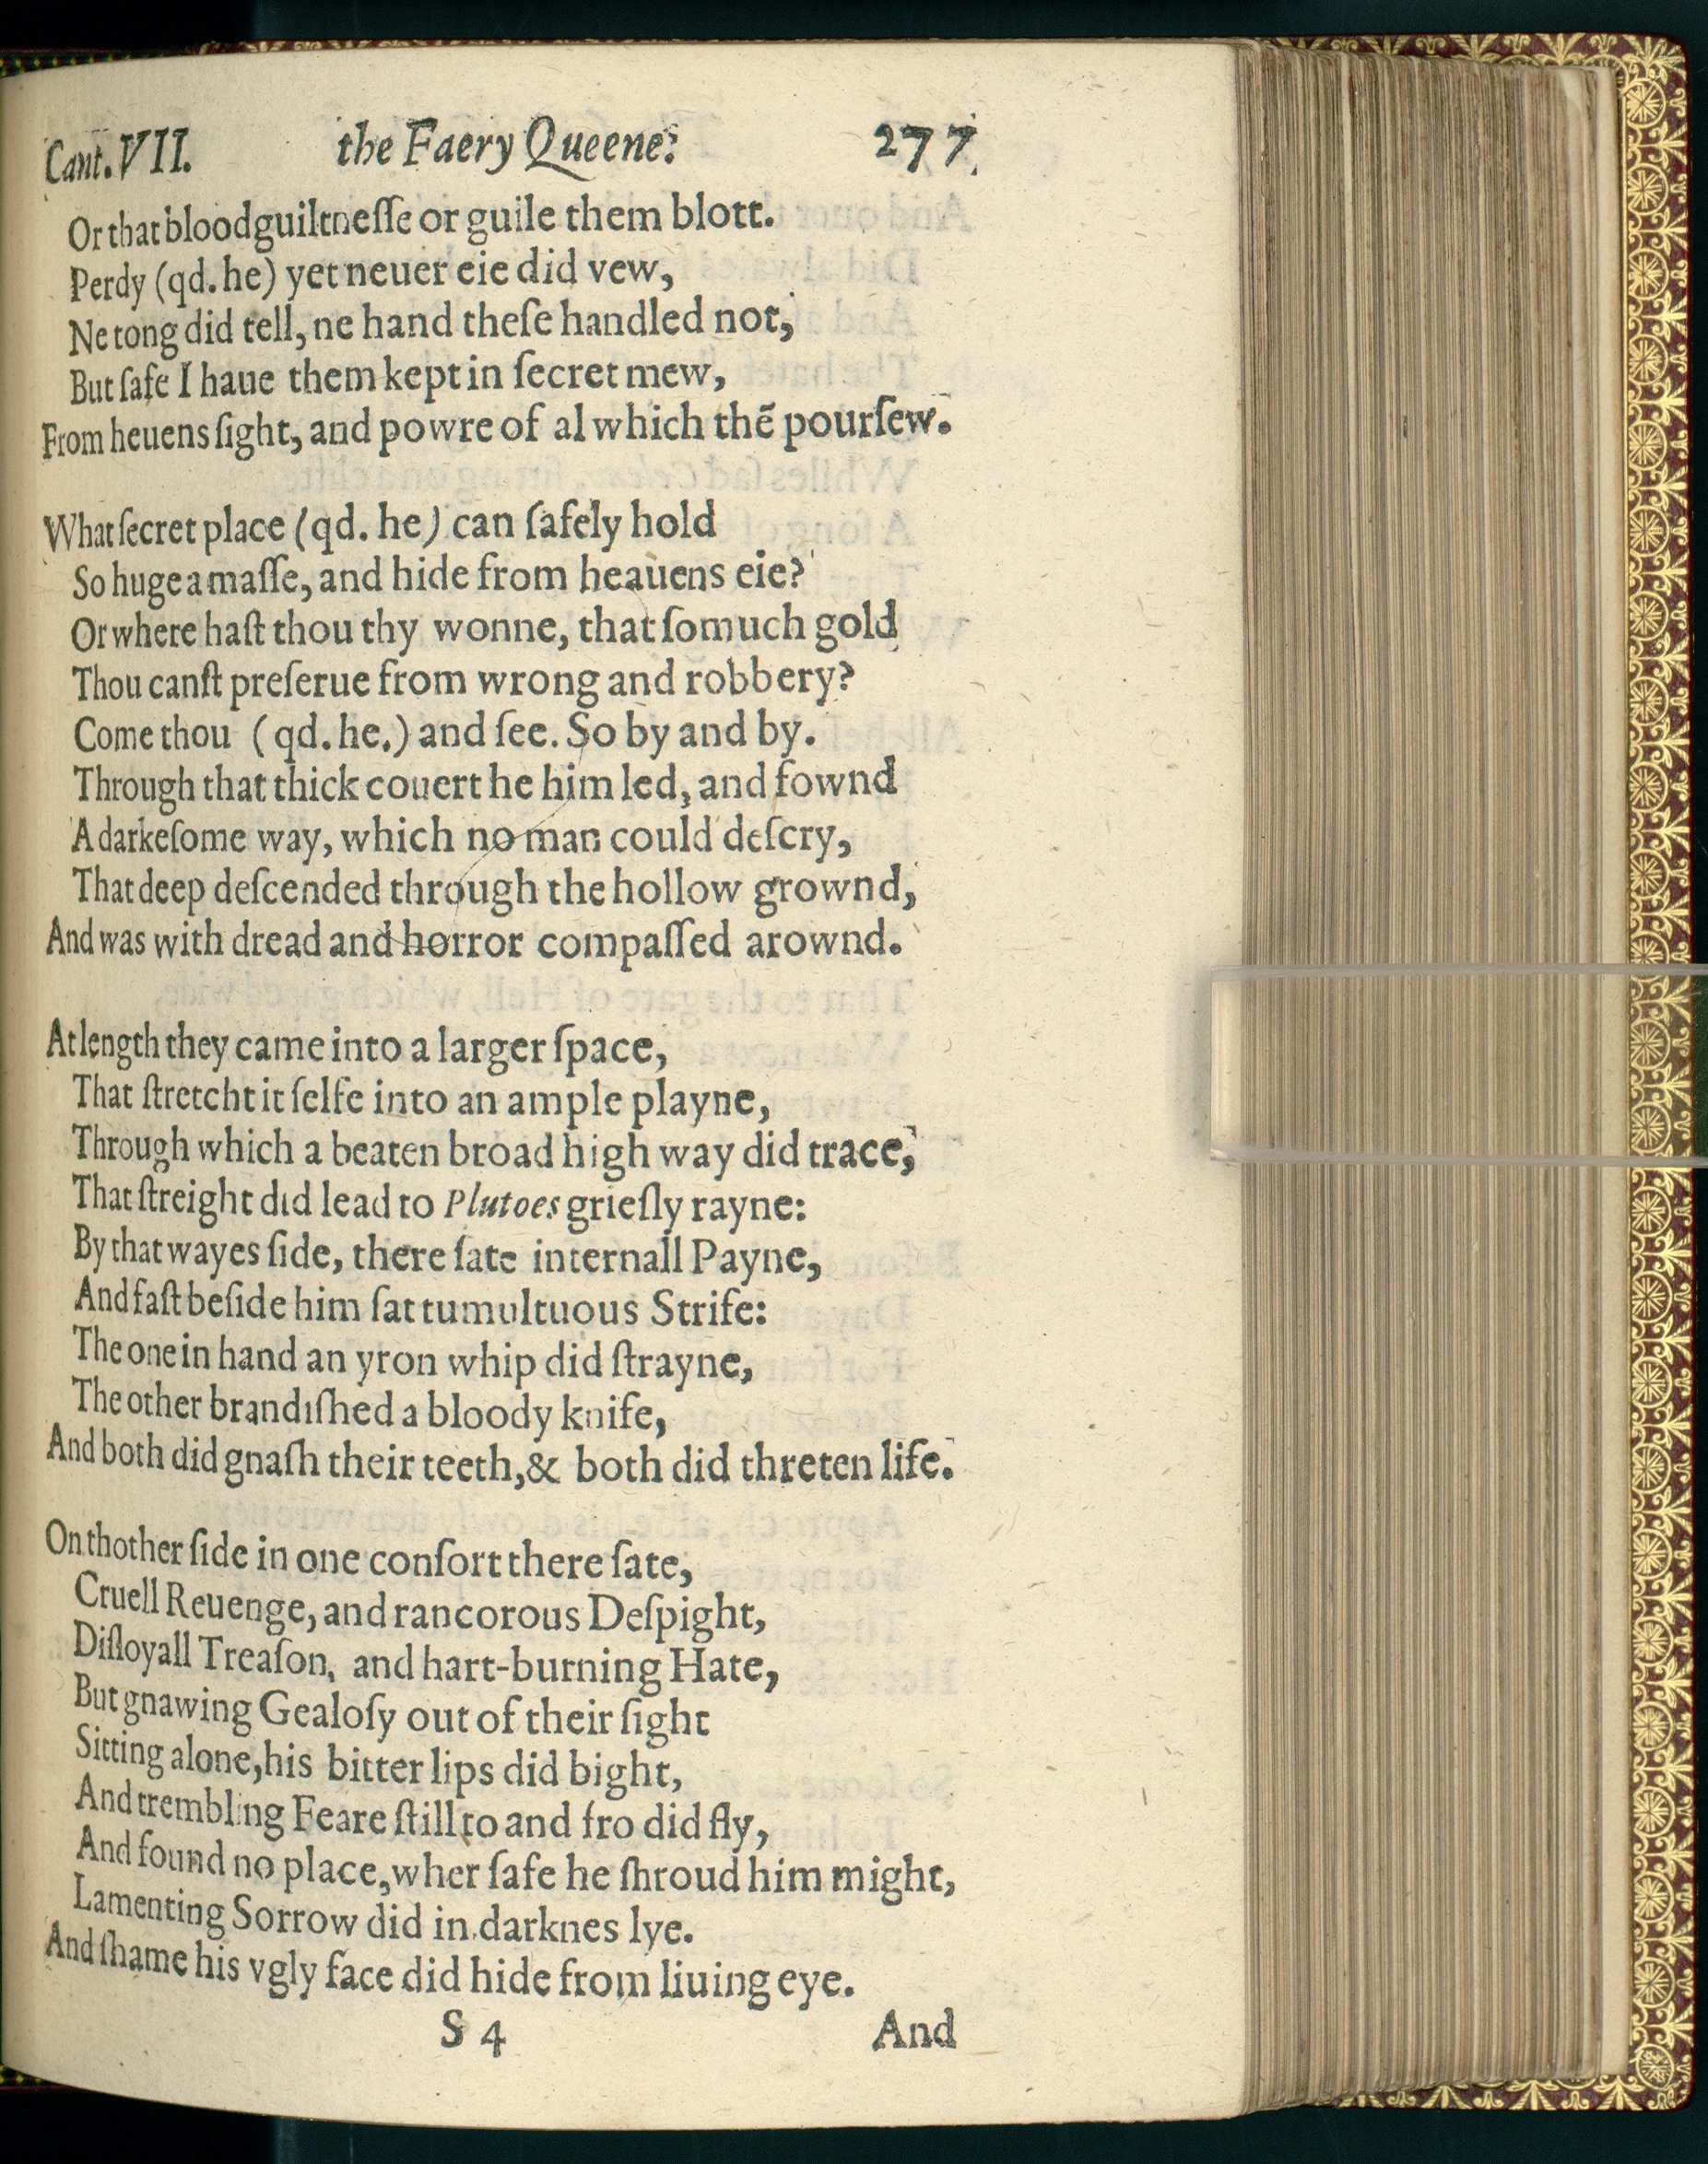 Cant. VII. the Faery Queene. 277
Or that bloodguiltneſſe or guile them blott.
Perdy (qd. he) yet neuer eie did vew,
Ne tong did tell, ne hand theſe handled not,
But ſafe I haue them kept in ſecret mew,
From heuens ſight, and powre of al which thẽ pourſew.
What ſecret place (qd. he) can ſafely hold
So huge a maſſe, and hide from heauens eie?
Or where haſt thou thy wonne, that ſo much gold
Thou canſt preſerue from wrong and robbery?
Come thou (qd. he.) and ſee. So by and by.
Through that thick couert he him led, and fownd
A darkeſome way, which no man could deſcry,
That deep deſcended through the hollow grownd,
And was with dread and horror compaſſed arownd.
At length they came into a larger ſpace,
That ſtretcht it ſelfe into an ample playne,
Through which a beaten broad high way did trace,
That ſtreight did lead to Plutoes grieſly rayne:
By that wayes ſide, there ſate internall Payne,
And faſt beſide him ſat tumultuous Strife:
The one in hand an yron whip did ſtrayne,
The other brandiſhed a bloody knife,
And both did gnaſh their teeth, & both did threten life.
On thother ſide in one conſort there ſate,
Cruell Reuenge, and rancorous Deſpight,
Diſloyall Treaſon, and hart-burning Hate,
But gnawing Gealoſy out of their ſight
Sitting alone, his bitter lips did bight,
And trembling Feare ſtill to and fro did fly,
And found no place, wher ſafe he ſhroud him might,
Lamenting Sorrow did in darknes lye.
And ſhame his vgly face did hide from liuing eye.
S 4 And